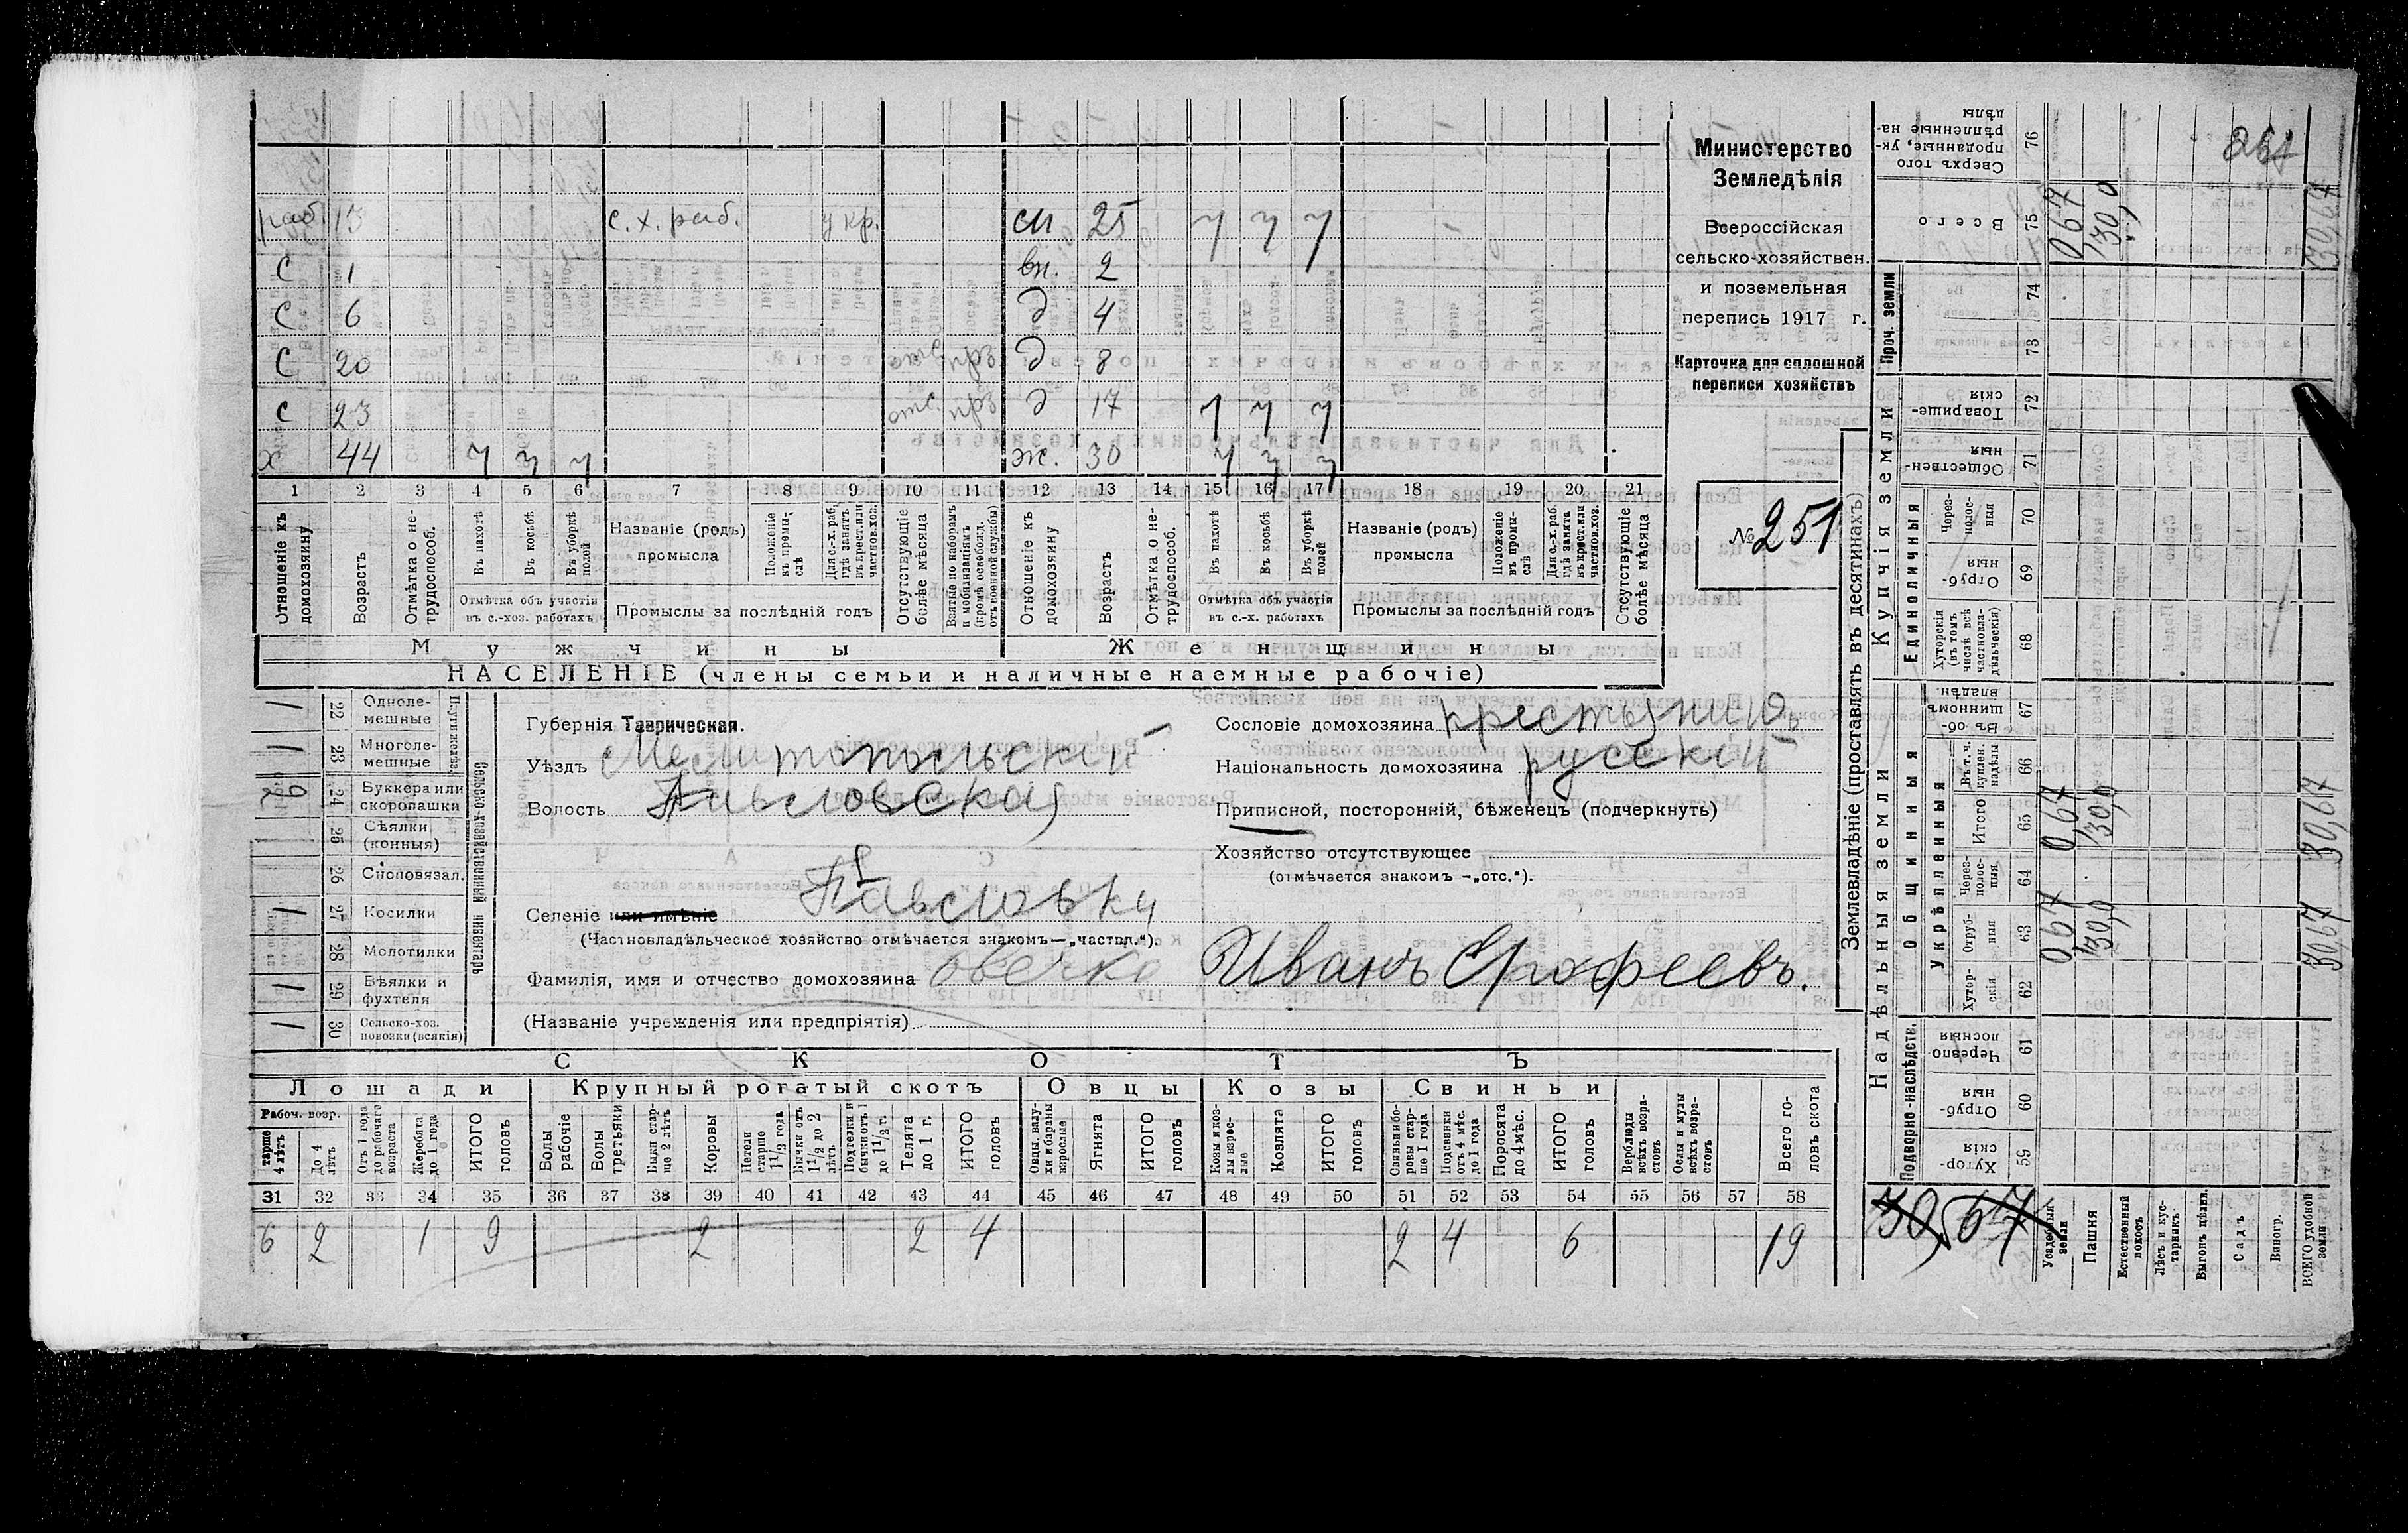 Министерство
Земледѣлія
Всероссійская
сельско-хозяйствен.
и поземельная
перепись 1917 г.
Карточка для сплошной
переписи хозяйствъ
№ 251
раб. 13 с. х. раб. укр. сн 25 7 7 7
с 1 вн. 2
с 6 д 4
с 20 отс. прз д 8
с 23 отс. прз д 17 7 7 7
х 44 7 7 7 ж. 30 7 7 7
1 2 3 4 5 6 7 8 9 10 11 12 13 14 15 16 17 18 19 20 21
Отношеніе къ домохозяину
Возрастъ
Отмѣтка о не-трудоспособ.
Въ пахотѣ
Въ косьбѣ
Въ уборкѣ полей
Отмѣтка объ участіи въ с.-хоз. работахъ
Названіе (родъ) промысла
Положеніе въ промы-слѣ
Для с.-х. раб. гдѣ занятъ въ крест. или частнов. хоз.
Промыслы за послѣдній годъ
Отсутствующіе болѣе мѣсяца
Взятые по наборамъ и мобилизаціямъ (кромѣ освобожд. отъ военной службы)
Отношеніе къ домохозяину
Возрастъ
Отмѣтка о не-трудоспособ.
Въ пахотѣ
Въ косьбѣ
Въ уборкѣ полей
Отмѣтка объ участіи въ с.-х. работахъ
Названіе (родъ) промысла
Положеніе въ промы-слѣ
Для с.-х. раб. гдѣ занята въ крест. или частнов. хоз.
Промыслы за послѣдній годъ
Отсутствующіе болѣе мѣсяца
Мужчины Женщины
НАСЕЛЕНІЕ (члены семьи и наличные наемные рабочіе)
Сельско-хозяйственный инвентарь
1 22 Одноле-мешные
1 23 Многоле-мешные
2 24 Буккера или скоропашки
25 Сѣялки (конныя)
26 Сноповязал.
1 27 Косилки
28 Молотилки
1 29 Вѣялки и фухтеля
1 30 Сельско-хоз. повозки (всякія)
Губернія Таврическая.
Уѣздъ Мелитопольскій
Волость Павловская
Селеніе или имѣніе Павловку
(Частновладѣльческое хозяйство отмѣчается знакомъ—„частвл.“).
Фамилія, имя и отчество домохозяина Овечко Иванъ Ерофеевъ.
(Названіе учрежденія или предпріятія)
Сословіе домохозяина крестьянинъ
Національность домохозяина русскій
Приписной, посторонній, бѣженецъ (подчеркнуть)
Хозяйство отсутствующее
(отмѣчается знакомъ —„отс.“).
СКОТЪ
Лошади Крупный рогатый скотъ Овцы Козы Свиньи
Рабоч. возр.
тарше 4 лѣтъ
До 4 лѣтъ
Отъ 1 года до рабочаго возраста
Жеребята до 1 года
ИТОГО головъ
Волы рабочіе
Волы третьяки
Быки стар-ше 2 лѣтъ
Коровы
Нетели старше 1 1/2 года
Бычки отъ 1 1/2 до 2 лѣтъ
Подтелки и бычки отъ 1 до 1 1/2 г.
Телята до 1 г.
ИТОГО головъ
Овцы, валу-хи и бараны взрослые
Ягнята
ИТОГО головъ
Козы и коз-лы взрос-лые
Козлята
ИТОГО головъ
Свиньи и бо-ровы стар-ше 1 года
Подсвинки отъ 4 мѣс. до 1 года
Поросята до 4 мѣс.
ИТОГО головъ
Верблюды всѣхъ возра-стовъ
Ослы и мулы всѣхъ возра-стовъ
Всего го-ловъ скота
31 32 33 34 35 36 37 38 39 40 41 42 43 44 45 46 47 48 49 50 51 52 53 54 55 56 57 58
6 2 1 9 2 2 4 2 4 6 19
Землевладѣніе (проставлять въ десятинахъ)
Надѣльныя земли Купчія земли Проч. земли
Подворно-наслѣдств. Общинныя Единоличныя
Укрѣпленныя
Хутор-скія 59
Отруб-ныя 60
Черезпо-лосныя 61
Хутор-скія 62
Отруб-ныя 63
Через-полос-ныя 64
Итого 65
Въ т. ч. куплен. надѣлы 66
Въ об-щинномъ владѣн. 67
Хуторскія (въ томъ числѣ всѣ частновла-дѣльческія) 68
Отруб-ныя 69
Через-полос-ныя 70
Обществен-ныя 71
Товарище-скія 72
73
74
Всего 75
Сверхъ того проданные, ук-рѣпленные на-дѣлы 76
Усадебныя земли 0,67 0,67 0,67
Пашня 30,0 30,0 30,0
Естественный покосъ
Лѣсъ и кус-тарникъ
Выгонъ цѣлин.
Садъ
Виногр.
ВСЕГО удобной земли 30,67 30,67 30,67
30,67